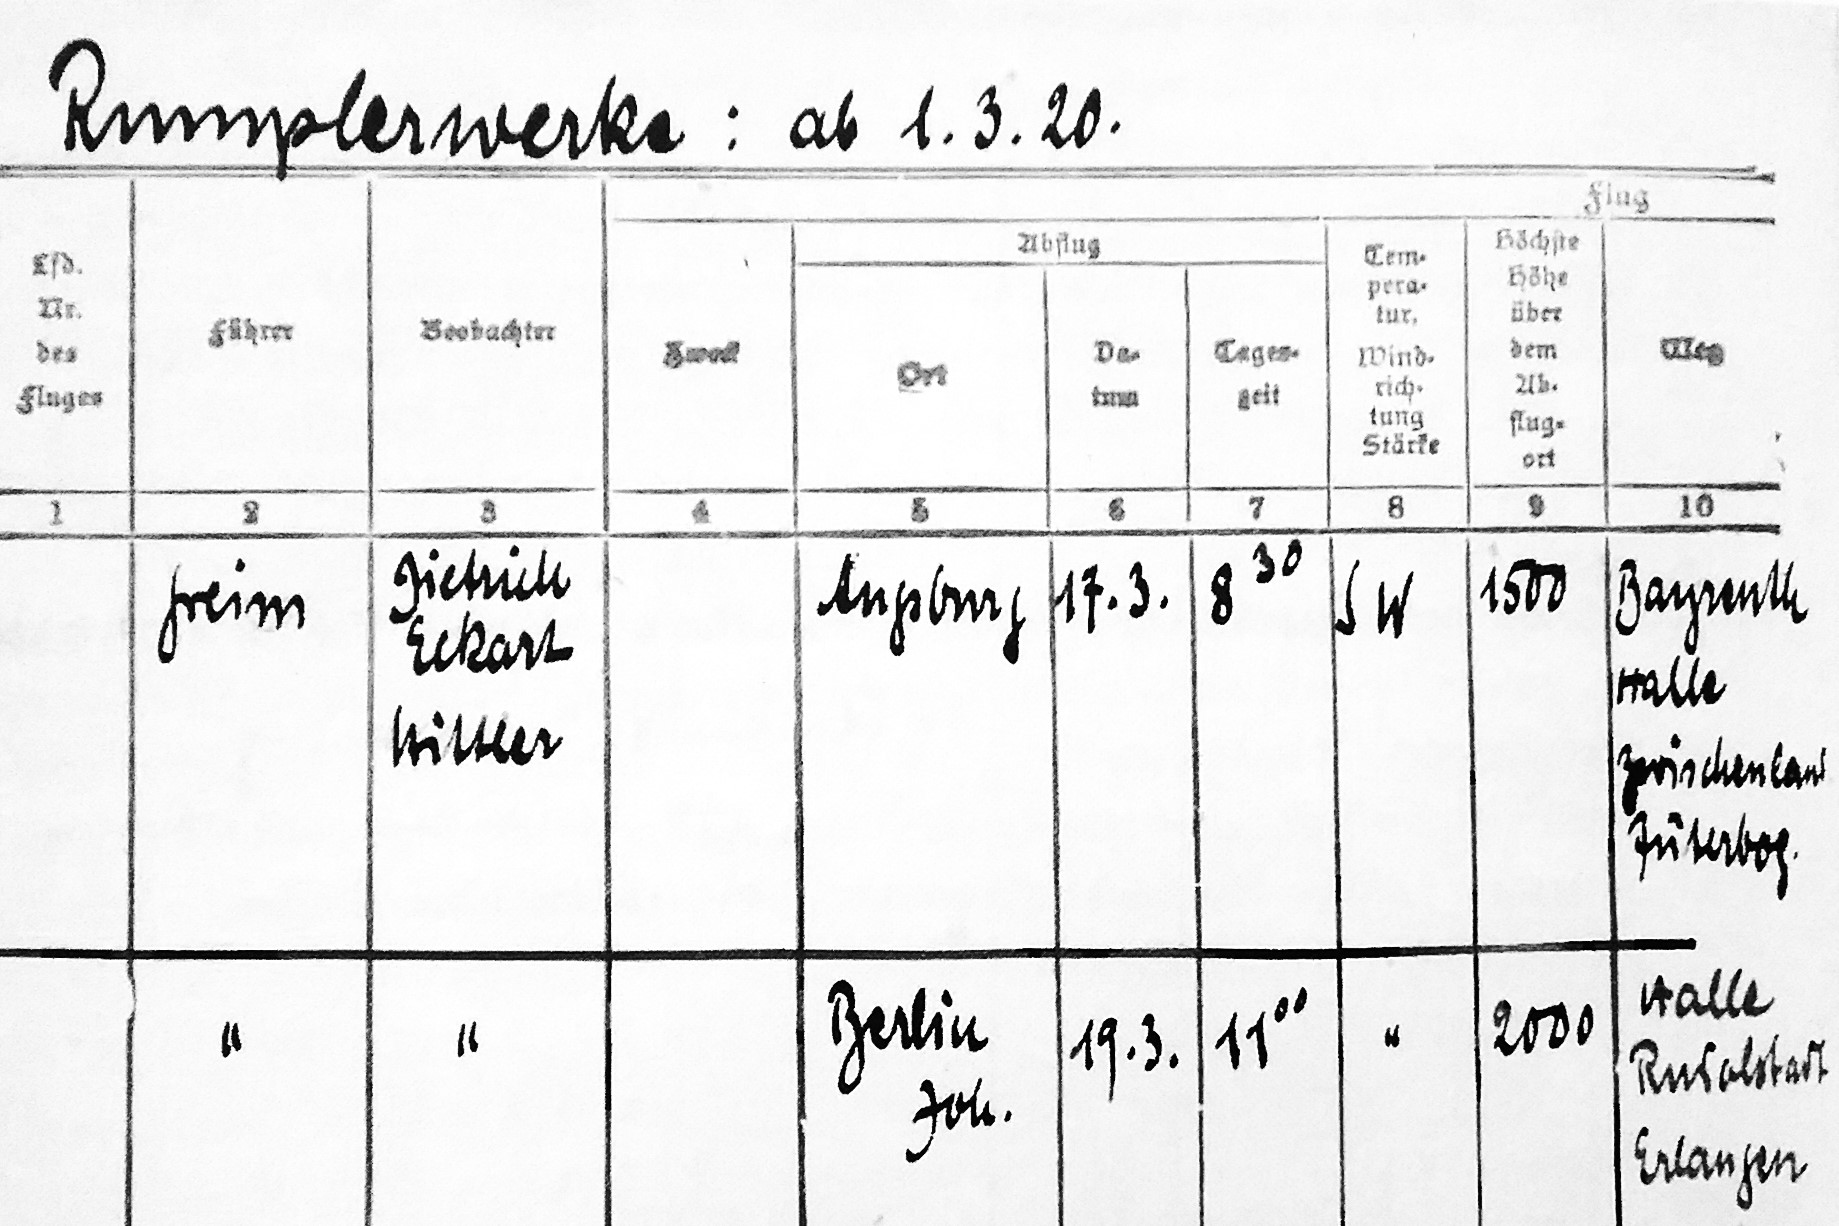 Rumplerwerke : ab 1.3.20.
Flug
Lfd.
Nr.
des
Fluges
Führer
Beobachter
Zweck
Abflug
Ort
Da-
tum
Tages-
zeit
Tem-
pera-
tur,
Wind-
rich-
tung
Stärke
Höchste
Höhe
über
dem
Ab-
flug-
ort
Weg
1 2 3 4 5 6 7 8 9 10
Dietrich
Eckart
Hittler
Augsburg 17.3. 8³⁰ SW 1500 Bayreuth
Halle
Zwischenland
Jüterbog.
" " Berlin 19.3. 11⁰⁰ " 2000 Halle
Joh. Rudolstadt
Erlangen